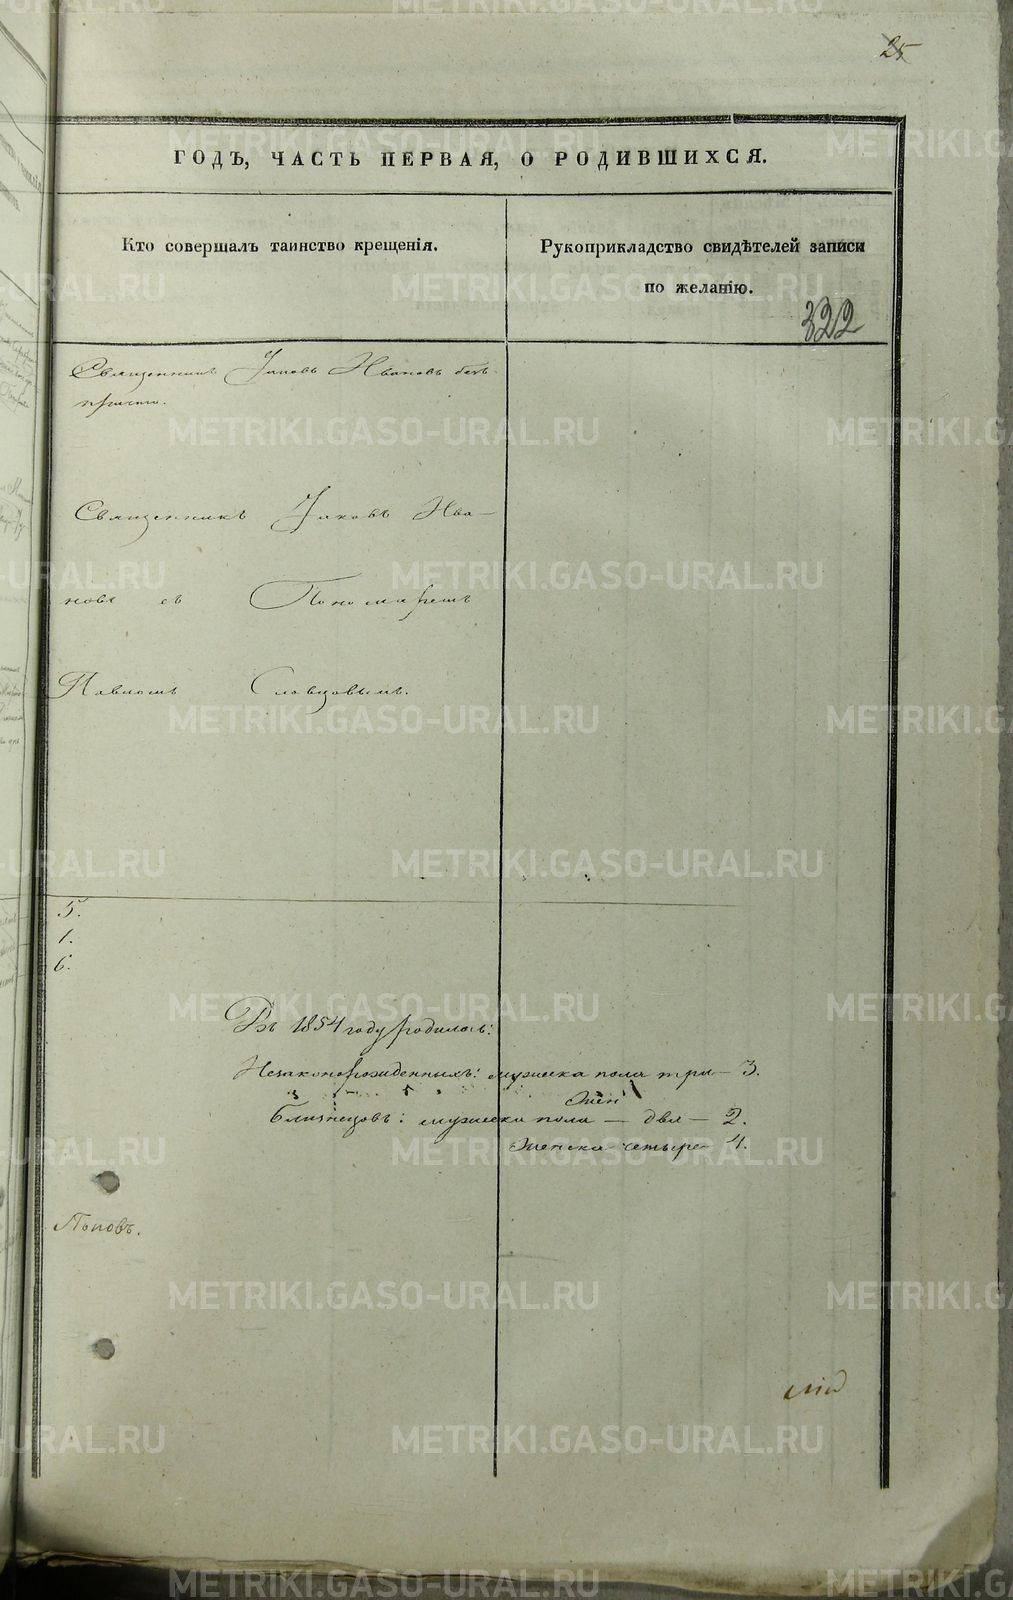 25
ГОДЪ, ЧАСТЬ ПЕРВАЯ, О РОДИВШИХСЯ.
Кто совершалъ таинство крещенія.
Рукоприкладство свидѣтелей записи
по желанію.
322
Священникъ Іаковъ Ивановъ безъ
причта.
Священникъ Іаковъ Ива-
новъ съ Пономаремъ
Павломъ Словцовымъ.
5.
1.
6.
Въ 1854 году родилось:
Незаконорожденныхъ: мужеска пола три – 3.
жен
Близнецовъ: мужеска пола – два – 2.
женска четыре 4.
Поповъ.
METRIKI.GASO-URAL.RU